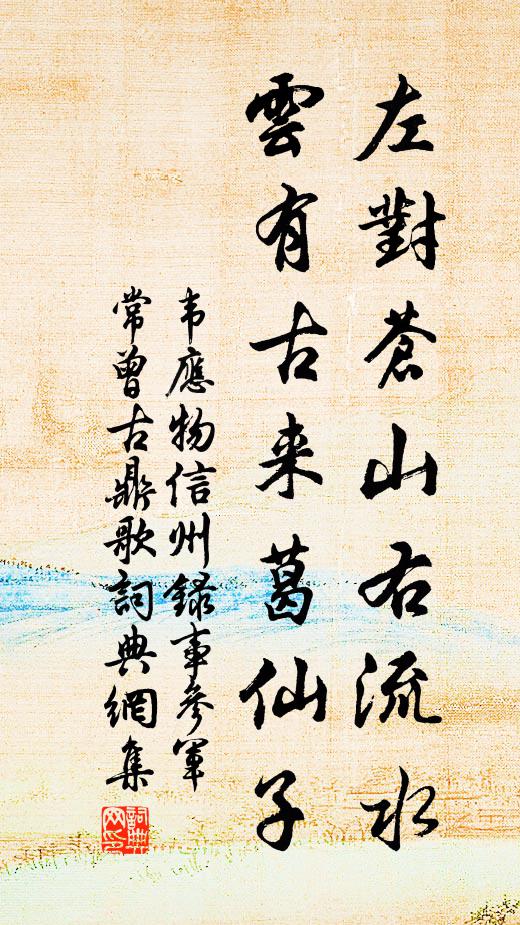 左對蒼山右流水
雲有古来葛仙子
韦應物信州録事參軍
常曾古鼎歌詞典網集
詞典网印